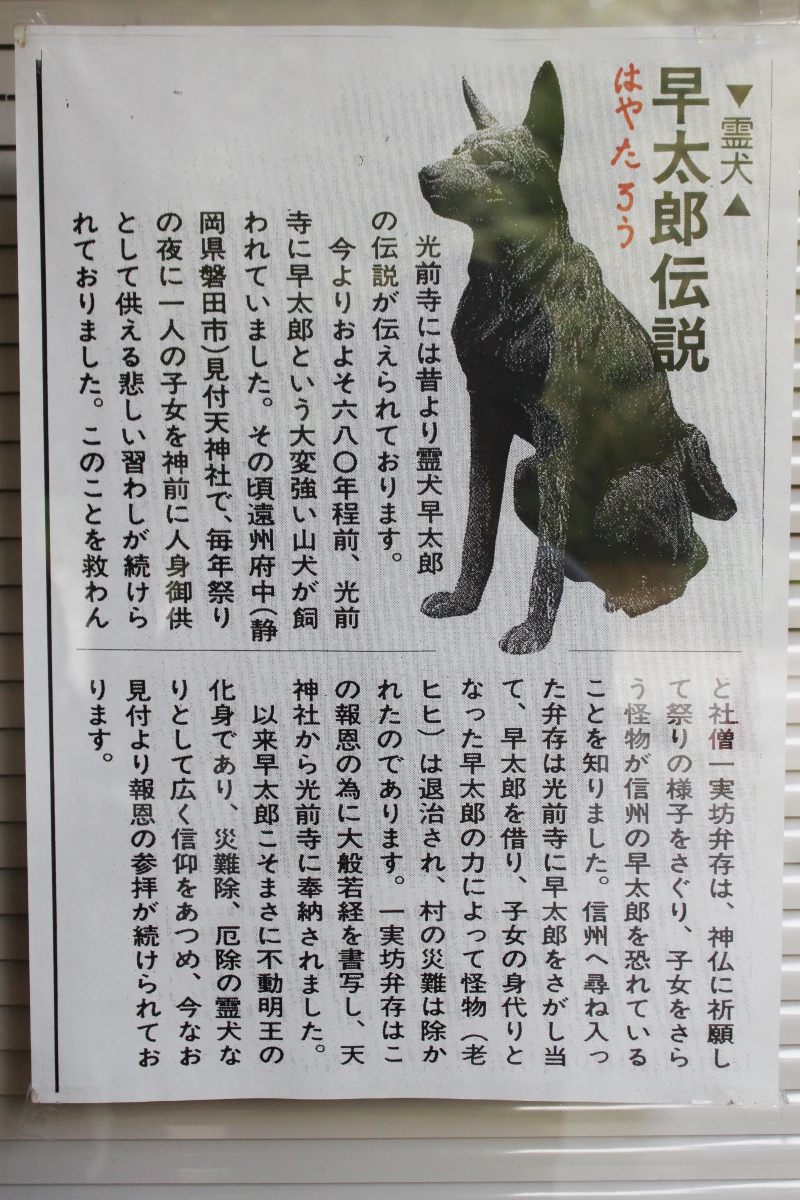 ▼霊犬▲
早太郎伝説
はやたろう
光前寺には昔より霊犬早太郎
の伝説が伝えられております。
今よりおよそ六八〇年程前、光前
寺に早太郎という大変強い山犬が飼
われていました。その頃遠州府中(静
岡県磐田市)見付天神社で、毎年祭り
の夜に一人の子女を神前に人身御供
として供える悲しい習わしが続けら
れておりました。このことを救わん
と社僧一実坊弁存は、神仏に祈願し
て祭りの様子をさぐり、子女をさら
う怪物が信州の早太郎を恐れている
ことを知りました。信州へ尋ね入っ
た弁存は光前寺に早太郎をさがし当
て、早太郎を借り、子女の身代りと
なった早太郎の力によって怪物（老
ヒヒ）は退治され、村の災難は除か
れたのであります。一実坊弁存はこ
の報恩の為に大般若経を書写し、天
神社から光前寺に奉納されました。
以来早太郎こそまさに不動明王の
化身であり、災難除、厄除の霊犬な
りとして広く信仰をあつめ、今なお
見付より報恩の参拝が続けられてお
ります。